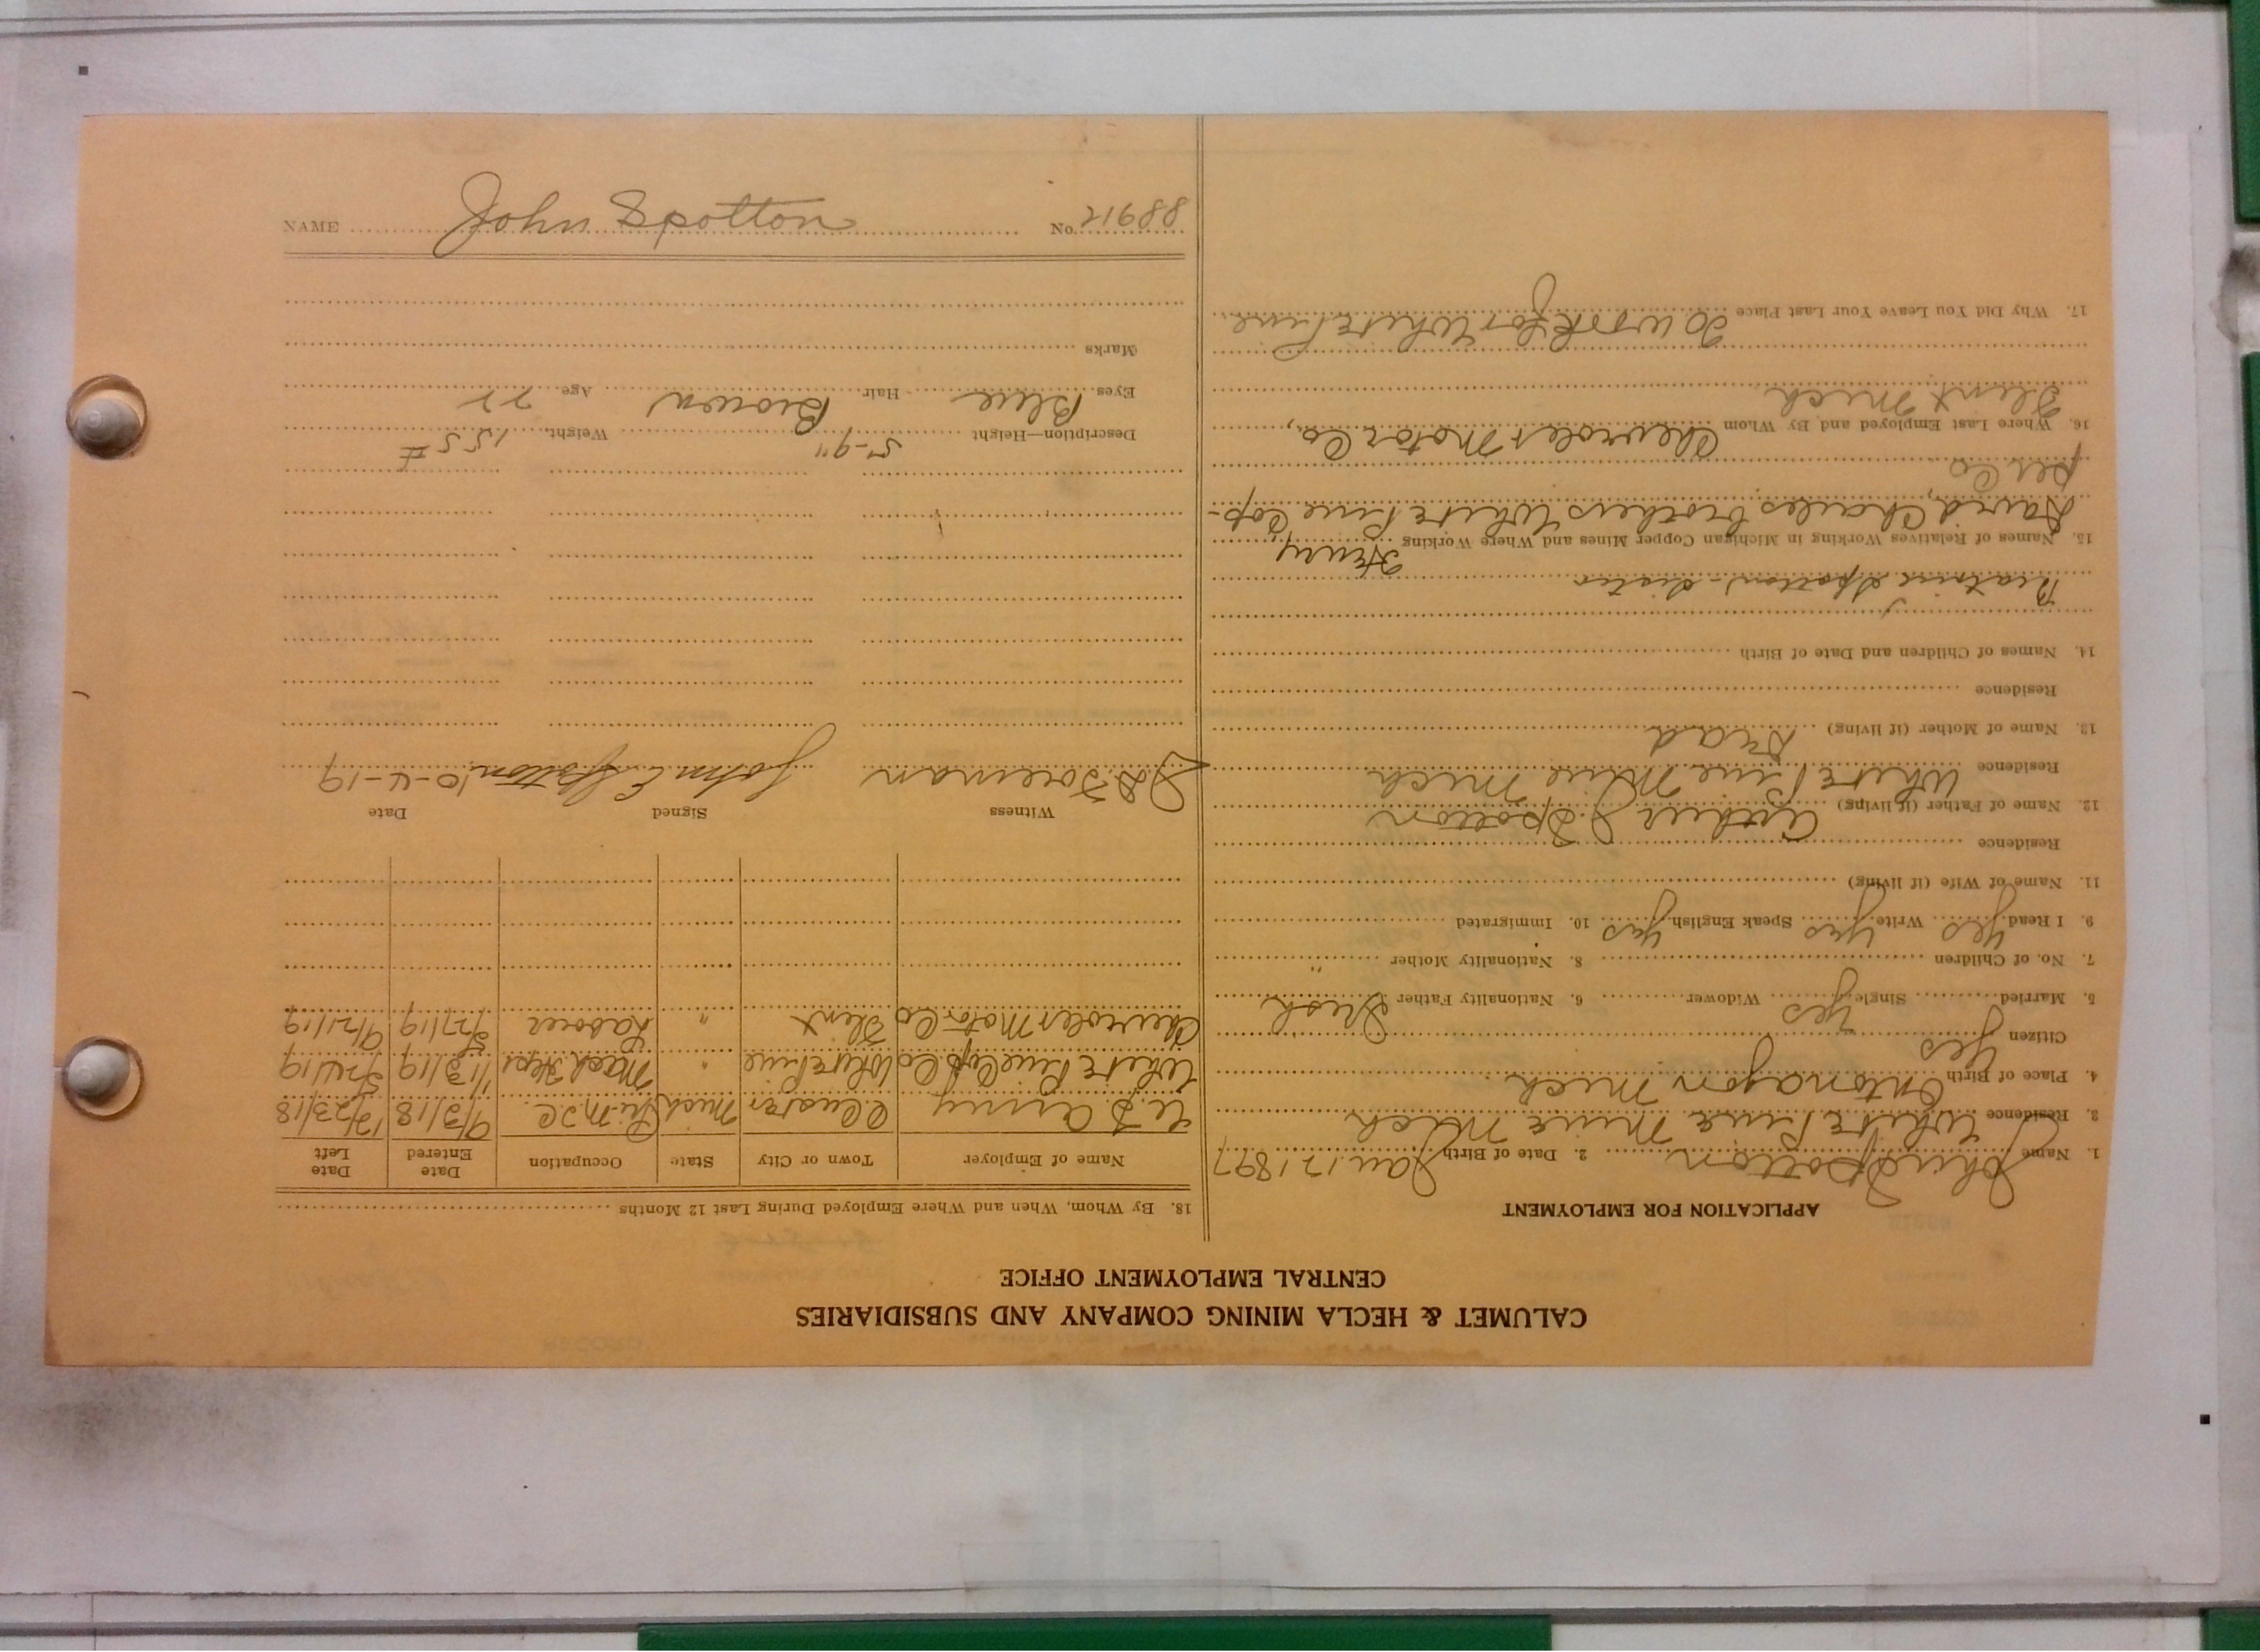 NAME John Spotton No. 21688
CALUMET & HECLA MINING COMPANY AND SUBSIDIARIES
CENTRAL EMPLOYMENT OFFICE
APPLICATION FOR EMPLOYMENT
1. Name John Spotton 2. Date of Birth Jan. 12 1897
3. Residence White Pine Mine Mich
4. Place of Birth Ontonagon Mich
Citizen yes
5. Married Single yes Widower 6. Nationality Father Irish
7. No. of Children 8. Nationality Mother "
9. I Read yes Write yes Speak English yes 10. Immigrated
11. Name of Wife (if living)
Residence
12. Name of Father (if living) Arthur J. Spotton
Residence White Pine Mine Mich
13. Name of Mother (if living) Dead
Residence
14. Names of Children and Date of Birth
Beatrice Spotton - sister
15. Names of Relatives Working in Michigan Copper Mines and Where Working Henry
David, Charles brothers White Pine Cop-
per Co
16. Where Last Employed and By Whom Chevrolet Motor Co.,
Flint Mich
17. Why Did You Leave Your Last Place To work for White Pine.
18. By Whom, When and Where Employed During Last 12 Months
Name of Employer Town or City State Occupation Date Entered Date Left
U. S. Army C. Custer Mich 9/3/18 12/23/18
White Pine Cop. Co White Pine " Mach. 1/13/19 5/24/19
Chevrolet Motor Co Flint " Laborer 5/27/19 9/21/19
Witness Signed Date
Foreman John E Spotton 10-4-19
Description—Height 5'-9" Weight 155 #
Eyes Blue Hair Brown Age 22
Marks